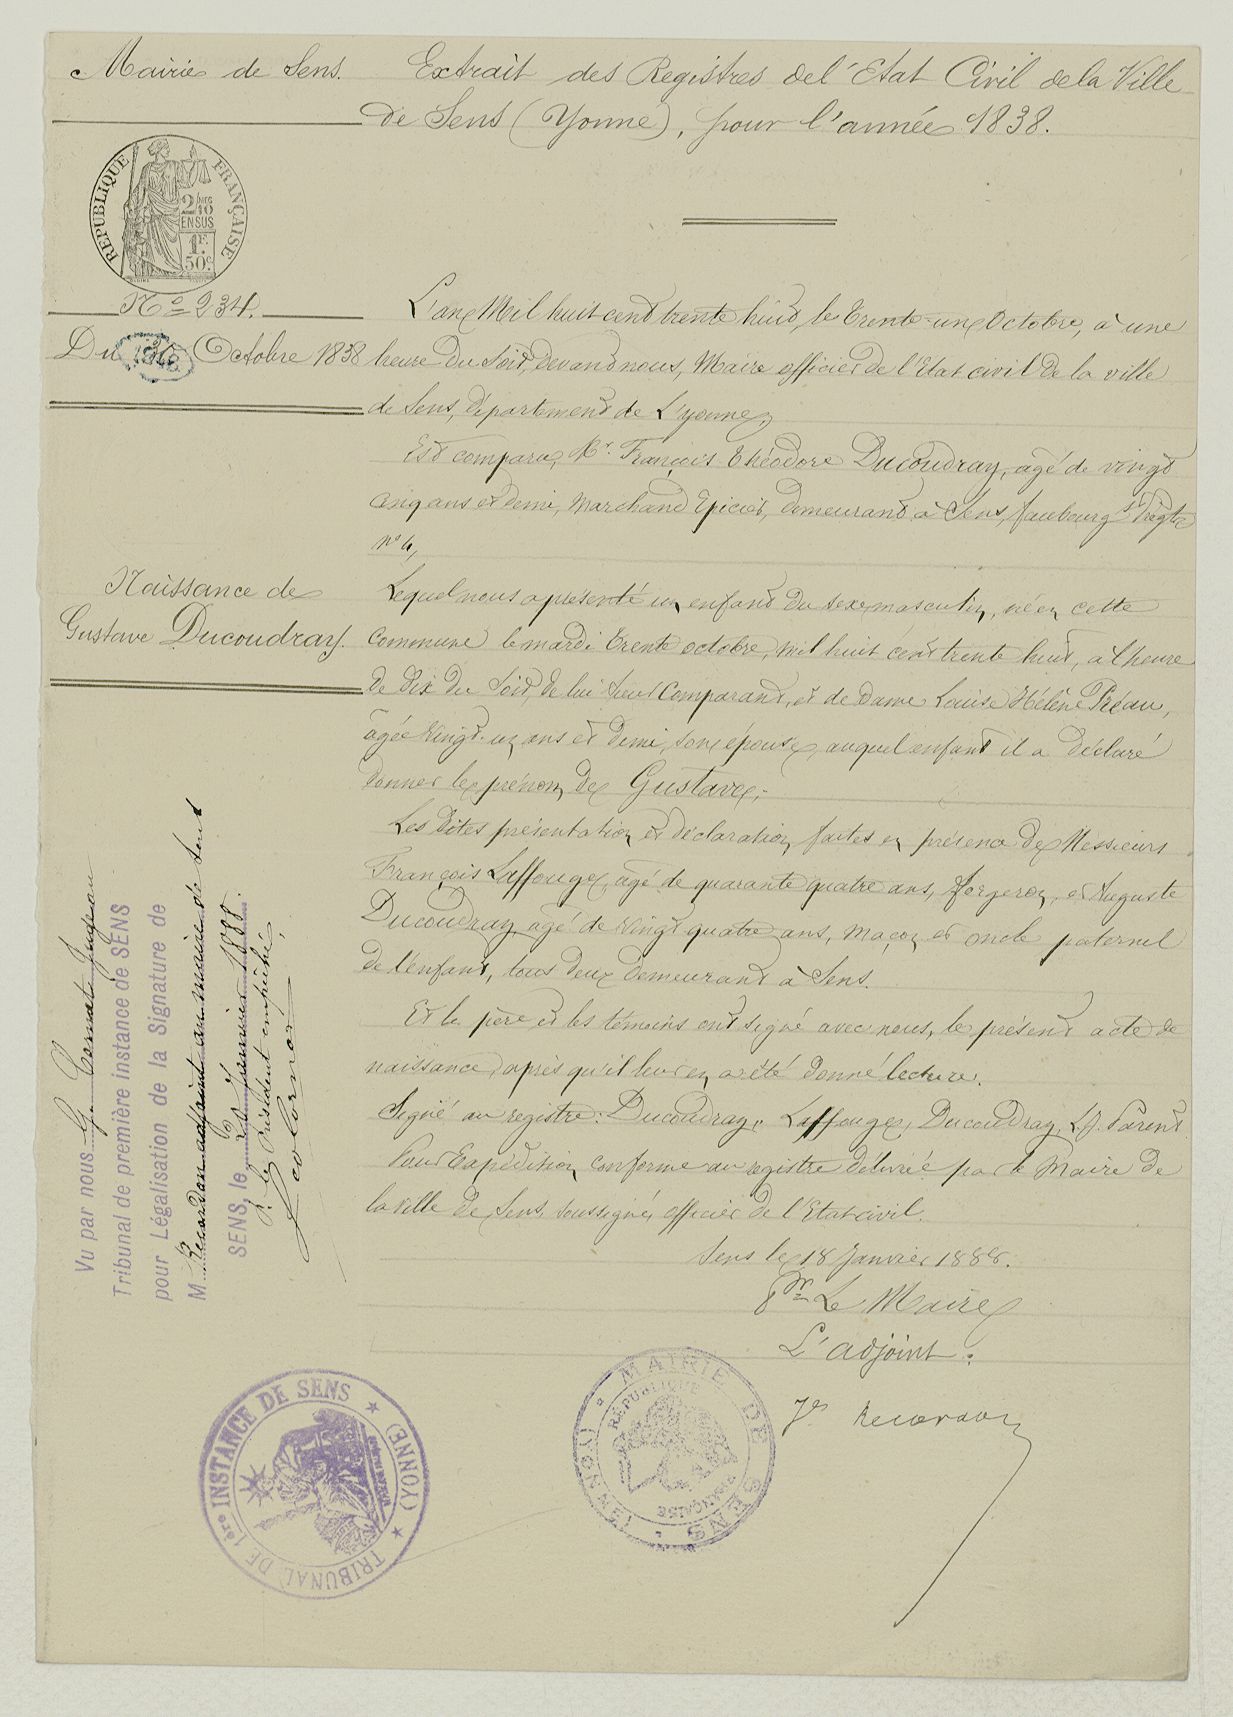 Mairie de Sens.
Extrait des Registres de l'Etat Civil de la Ville
de Sens (Yonne), pour l'année 1838.
RÉPUBLIQUE FRANÇAISE
2/10 EN SUS
1F. 50c.
No 234.
Du Octobre 1838
Naissance de
Gustave Ducoudray.
L'an Mil huit cent trente huit, le trente-un Octobre, à une
heure du Soir, devant nous, Maire officier de l'Etat civil de la ville
de Sens, département de L'yonne,
Est comparu, Mr. François Théodore Ducoudray, agé de vingt
cinq ans et demi, marchand Epicier, demeurant à Sens, faubourg St
no 4,
Lequel nous a présenté un enfant du sexe masculin, né en cette
commune le mardi trente octobre, mil huit cent trente huit, à l'heure
de dix du Soir, de lui Sieur Comparant, et de Dame Louise Hélène Préau,
agée vingt-un ans et demi, son épouse, auquel enfant il a déclaré
donner le prénom de Gustave,
Les dites présentation et déclaration faites en présence de Messieurs
François Laffouge, agé de quarante quatre ans, forgeron, et Auguste
Ducoudray, agé de vingt quatre ans, maçon et oncle paternel
de l'enfant, tous deux demeurant à Sens.
Et le père et les témoins ont signé avec nous, le présent acte de
naissance après qu'il leur en a été donné lecture.
Signé au registre: Ducoudray, Laffouge, Ducoudray, Parent
Pour Expédition conforme au registre délivrée par le Maire de
la ville de Sens, soussigné, officier de l'Etat civil.
Sens le 18 Janvier 1888.
Pr Le Maire
L'adjoint:
Recordon
Vu par nous G. Juge au
Tribunal de première instance de SENS
pour Légalisation de la Signature de
M Recordon adjoint au maire de Sens
SENS, le Janvier 1888.
P. le Président empêché,
TRIBUNAL DE 1ère INSTANCE DE SENS (YONNE)
MAIRIE DE SENS (YONNE)
RÉPUBLIQUE FRANÇAISE